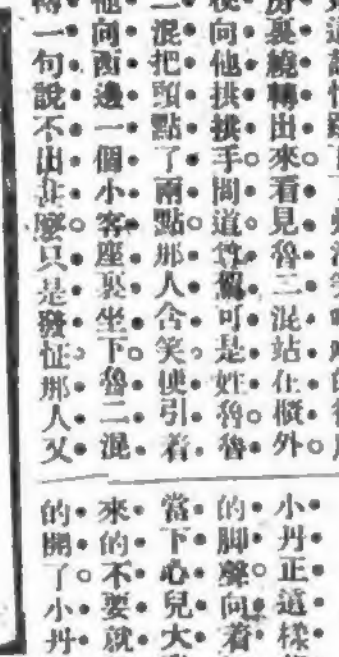 裏繞轉出來。看見魯二混站在櫃外。
向他拱拱手。問道可是姓魯。魯
二混把頭點了兩點。那人含笑便引着
他向西邊一個小客座裏坐下。魯二混
一句說不出甚麽。只是發怔。那人又
小丹正這樣
的脚聲。向着
當下心兒大
來的不要就
的開了。小丹